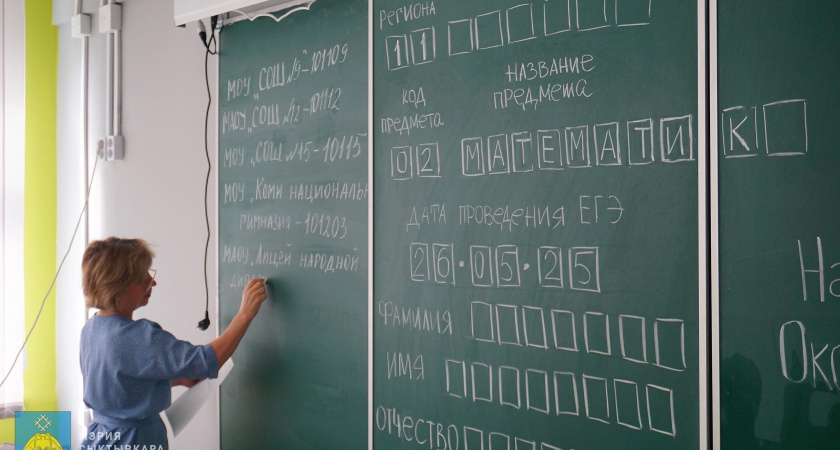 МОУ „СОШ №9" - 101109
МАОУ „СОШ №12 - 101112
МОУ „СОШ №15 - 101115
МОУ „Коми национальн
гимназия - 101203
МАОУ „Лицей народной
региона
11
код предмета
название предмета
02 МАТЕМАТИК
дата проведения ЕГЭ
26.05.25
фамилия
имя
отчество
На
Око
МЭРИЯ
СЫКТЫВКАРА